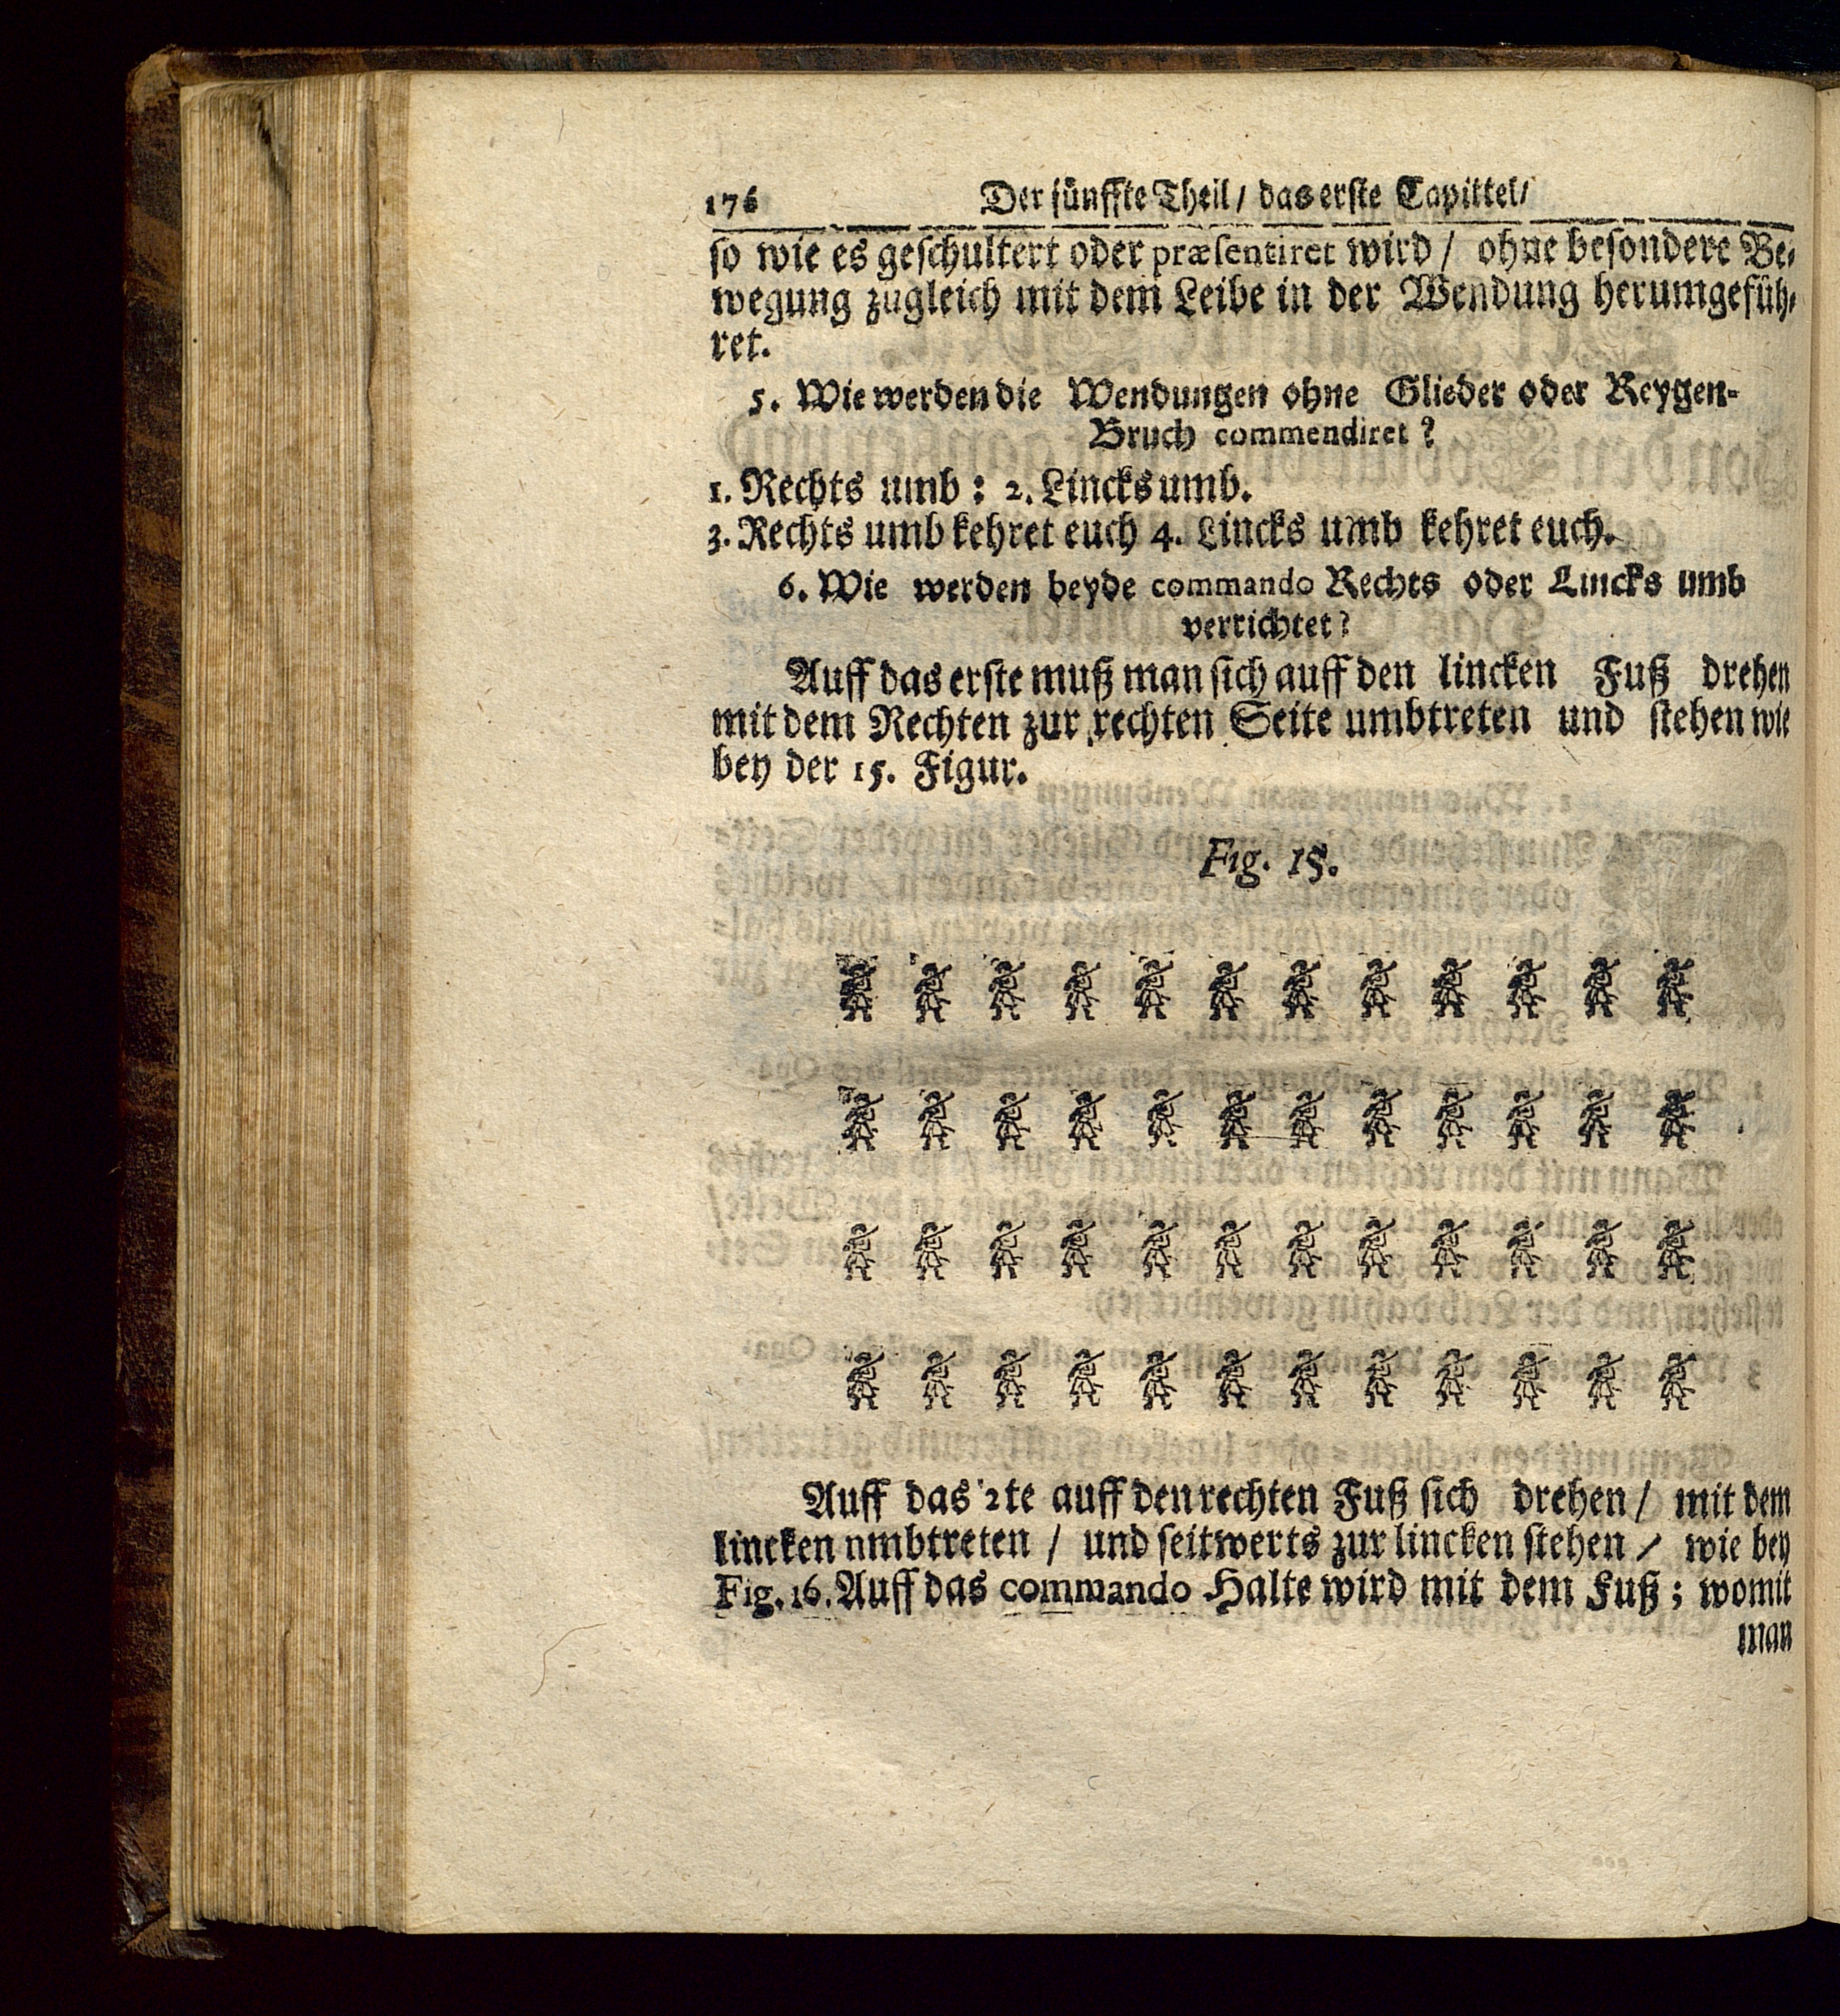 176 Der fünffte Theil / das erste Capittel /
so wie es geschultert oder præsentiret wird / ohne besondere Be-
wegung zugleich mit dem Leibe in der Wendung herumgefüh-
ret.
5. Wie werden die Wendungen ohne Glieder oder Reygen-
Bruch commendiret ?
1. Rechts umb : 2. Lincks umb.
3. Rechts umb kehret euch 4. Lincks umb kehret euch.
6. Wie werden beyde commando Rechts oder Lincks umb
verrichtet ?
Auff das erste muß man sich auff den lincken Fuß drehen
mit dem Rechten zur rechten Seite umbtreten und stehen wie
bey der 15. Figur.
Fig. 15.
Auff das 2te auff den rechten Fuß sich drehen / mit dem
lincken nmbtreten / und seitwerts zur lincken stehen / wie bey
Fig. 16. Auff das commando Halte wird mit dem Fuß ; womit
man